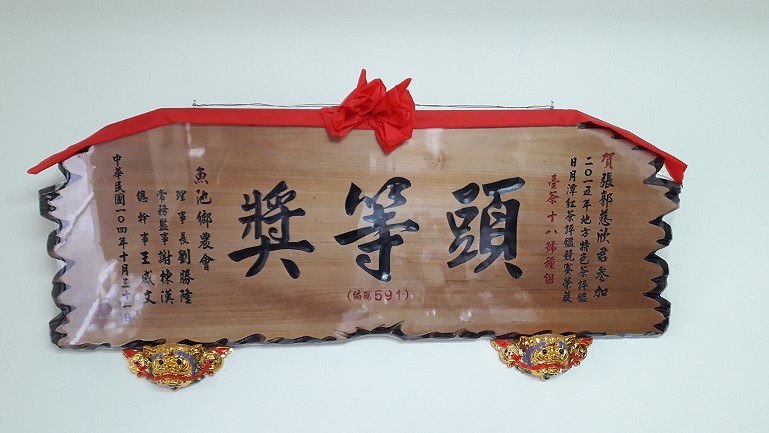 賀張郭慈欣君參加
二〇一五年地方特色茶評鑑
日月潭紅茶評鑑競賽榮獲
臺茶十八號種組
頭等獎
(編號591)
魚池鄉農會
理事長劉勝隆
常務監事謝棟漢
總幹事王威文
中華民國一〇四年十月三十一日